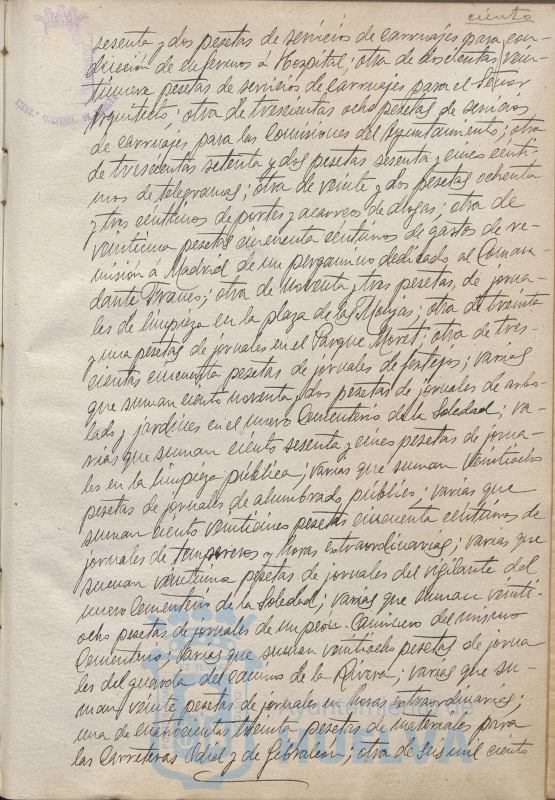 ciento
sesenta y dos pesetas de servicio de carruajes para con-
ducción de enfermos á Hospital; otra de doscientas vein-
tinueve pesetas de servicios de carruajes para el Señor
Arquitecto; otra de trescientas ocho pesetas de servicios
de carruajes para las Comisiones del Ayuntamiento; otra
de trescientas setenta y dos pesetas sesenta y cinco cénti-
mos de telegramas; otra de veinte y dos pesetas ochenta
y tres céntimos de portes y acarreos de drogas; otra de
veintiuna pesetas cincuenta céntimos de gastos de re-
misión á Madrid de un pergamino dedicado al Coman-
dante Franco; otra de noventa y tres pesetas, de jorna-
les de limpieza en la plaza de las Monjas; otra de treinta
y una pesetas de jornales en el Parque Moret; otra de tres-
cientas cincuenta pesetas de jornales de festejos; varias
que suman ciento noventa y dos pesetas de jornales de arbo-
lado y jardines en el nuevo Cementerio de la Soledad; va-
rias que suman ciento sesenta y cinco pesetas de jorna-
les en la limpieza pública; varias que suman veintiocho
pesetas de jornales de alumbrado público; varias que
suman ciento veinticinco pesetas cincuenta céntimos de
jornales de temporeros y horas extraordinarias; varias que
suman veintiuna pesetas de jornales del vigilante del
nuevo Cementerio de la Soledad; varias que suman veinti-
ocho pesetas de jornales de un peón-caminero del mismo
Cementerio; varias que suman veintiocho pesetas de jorna-
les del guarda del camino de la Rivera; varias que su-
man veinte pesetas de jornales en horas extraordinarias;
una de cuatrocientas treinta pesetas de materiales para
las Carreteras Odiel y de Gibraleón; otra de seis mil ciento
Ayuntamiento de
HUELVA